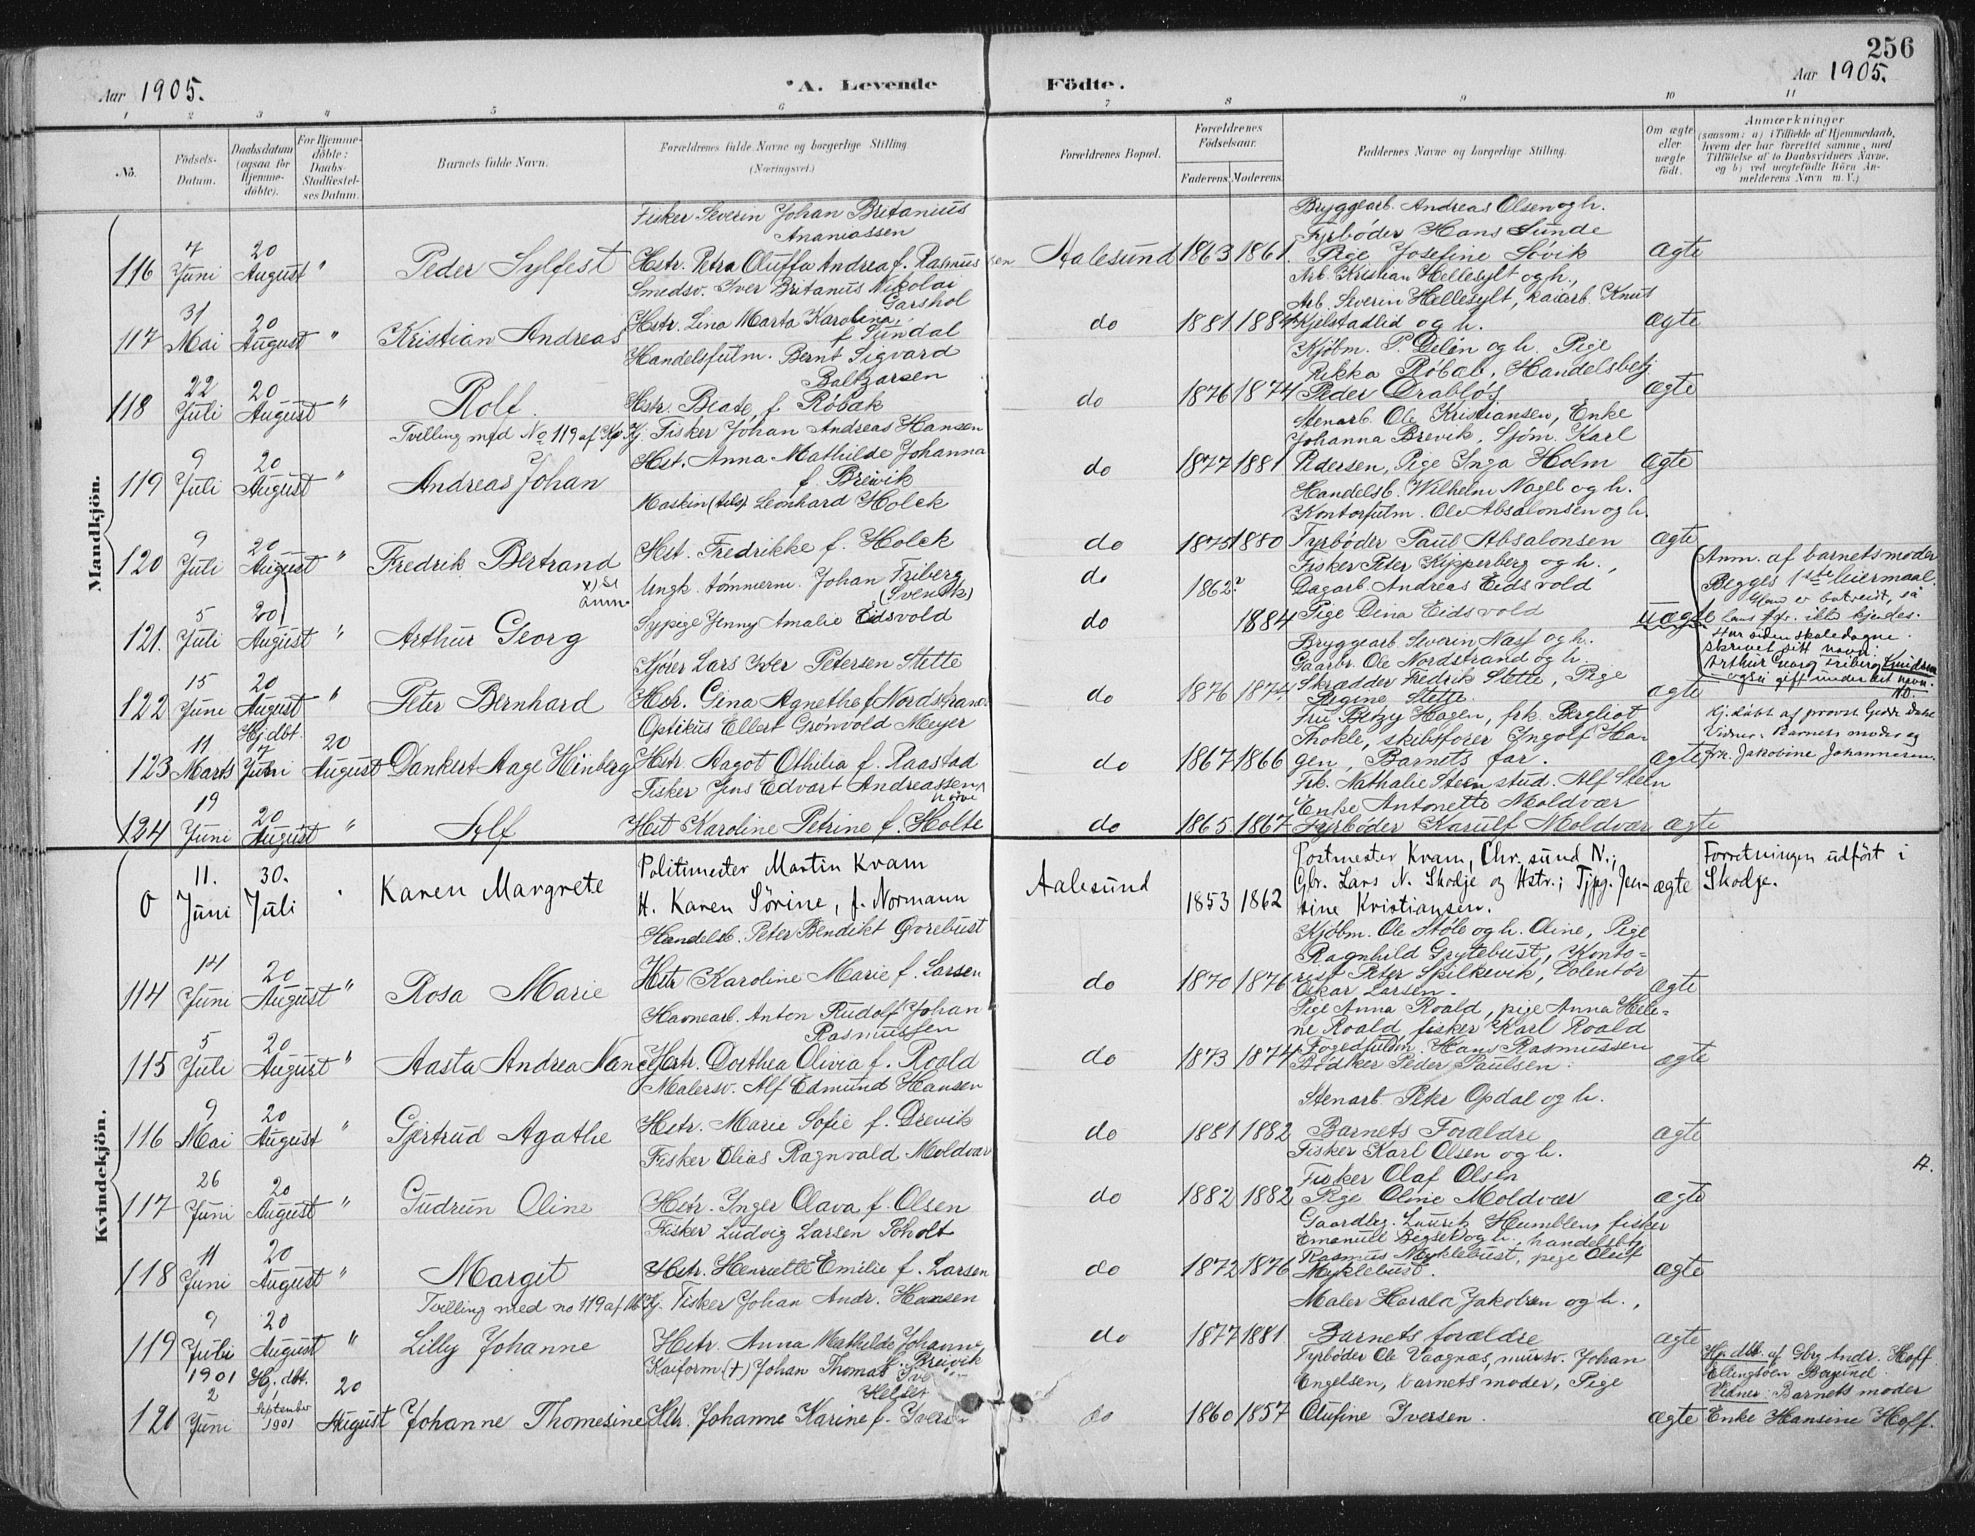 256
Aar 1905. A. Levende Födte. Aar 1905.
1 2 3 4 5 6 7 8 9 10 11
No.
Födsels-Datum.
Daabsdatum (ogsaa for Hjemme-döbte).
For Hjemme-döbte: Daabs-Stadfæstelses Datum.
Barnets fulde Navn.
Forældrenes fulde Navne og borgerlige Stilling. (Næringsvei.)
Forældrenes Bopæl.
Forældrenes Födselsaar.
Faderens. Moderens.
Faddernes Navne og borgerlige Stilling.
Om ægte eller uægte födt.
Anmærkninger (saasom: a) i Tilfælde af Hjemmedaab, hvem der har forrettet samme, med Tilföielse af to Daabsvidners Navne, og b) ved uægtefödte Börn Anmelderens Navn m. V.)
Mandkjön.
116 7 Juni 20 August " Peder Sylfest
Fisker Severin Johan Britanius Ananiassen
Hstr. Petra Oluffa Andrea f. Rasmussen
Aalesund 1863 1861
Bryggearb. Andreas Olsen og h.
Fyrbøder Hans Sunde
Pige Josefine Løvik
Ægte
117 31 Mai 20 August " Kristian Andreas
Smedsv. Iver Britanius Nikolai Garshol
Hstr. Lina Marta Karolina f. Sundal
do 1881 1884
Arb. Kristian Hellesylt og h.,
Arb. Severin Hellesylt, kaiarb. Knut
Kjelstadlid og h.
Ægte
118 22 Juli 20 August " Rolf.
Handelsfulm. Bernt Sigvard Baltzarsen
Hstr. Beate, f. Røbæk
do 1876 1874
Kjøbm. P. Delén og h. Pige
Rikka Røbæk, Handelsbetj
Peder Drabløs
Ægte
Tvilling med No 119 af Kv Kj.
119 9 Juli 20 August " Andreas Johan
Fisker Johan Andreas Hansen
Hst. Anna Mathilde Johanna f. Breivik
do 1877 1881
Stenarb. Ole Kristiansen, Enke
Johanna Brevik, Sjøm. Karl
Pedersen, Pige Inga Holm
Ægte
120 9 Juli 20 August " Fredrik Bertrand
Maskin(tels) Leonhard Holck
Hst. Fredrikke f. Holck
do 1875 1880
Handelsb. Wilhelm Nagel og h.
Kontorfulm. Ole Absalonsen og h.
Fyrbøder Paul Absalonsen
Ægte
x) Se anm.
121. 5 Juli 20 August " Arthur Georg
Ungk. tømmerm. Johan Friberg (Svensk)
Sypige Jenny Amalie Eidsvold
do 1862?
do 1884
Fisker Peter Kipperberg og h.,
Dagarb. Andreas Eidsvold
Pige Dina Eidsvold
uægte
Anm. af barnets moder
Begges 1ste leiermaal.
Har siden skoledagene
skrevet sitt navn:
Arthur Georg Friberg Knudsen
også gift under det navn.
122 15 Juni 20 August " Peter Bernhard
Sjøier Lars Iver Petersen Stette
Hstr. Gina Agnethe f. Nordstrand
do 1876 1874
Bryggearb Severin Nasf og h.
Gaarbr. Ole Nordstrand og h.
Skrædder Fredrik Stette, Pige
Regine Stette.
ægte
123 11 Marts Hj. dbt. 7 Juni 20 August Dankert Aage Hinberg
Optikus Ellert Grönvold Meyer
Hstr. Aagot Othilia f. Raastad
do 1867 1866
Fru Betzy Hagen, frk. Bergliot
Thokle, skibsfører Ingolf Ha-
gen, Barnets far.
Ægte
Hj. døbt af provst Gedde Dahl
Vidner: Barnets moder og
frk. Jakobine Johannesen
124 19 Juni 20 August " Alf
Fisker Jens Edvart Andreassen Nørve
Hst Karoline Petrine f. Holte
do 1865 1867
Frk. Nathalie Steen, stud. Alf Steen
Enke Antonette Moldvær
Fyrbøder Karulf Moldvær
Ægte
Kvindekjön.
0 11. Juni 30. Juli " Karen Margrete
Politimester Martin Kvam
H. Karen Sörine, f. Normann
Aalesund 1853 1862
Postmester Kvam, Chr.sund N.;
Gbr. Lars N. Skodje og Hstr.; Tjpg. Jen-
sine Kristiansen.
ægte
Forretningen udfört i
Skodje.
114 14 Juni 20 August " Rosa Marie
Handelsb. Peter Bendikt Qvrebust
Hstr Karoline Marie f. Larsen
do 1870 1876
Kjøbm. Ole Støle og h. Oline, Pige
Ragnhild Grytebust, Konto-
rist Peter Spilkevik, Volentör
Oskar Larsen.
Ægte
115 5 Juli 20 August " Aasta Andrea Nancy
Havnearb. Anton Rudolf Johan Rasmussen
Hstr. Dorthea Olivia f. Roald
do 1873 1874
Pige Anna Roald, pige Anna Hele-
ne Roald, fisker Karl Roald
Fogedfuldm. Hans Rasmussen
Bødker Peder Paulsen.
Ægte
116 9 Mai 20 August " Gjertrud Agathe
Malersv. Alf Edmund Hansen
Hstr. Marie Sofie f. Drevik
do 1881 1882
Stenarb. Peter Opdal og h.
Barnets Forældre
Ægte
117 26 Juni 20 August " Gudrun Oline
Fisker Olias Ragnvald Moldvær
Hstr. Inger Olava f. Olsen
do 1882 1882
Fisker Karl Olsen og h.
Fisker Olaf Olsen
Pige Oline Moldvær
Ægte
118 11 Juni 20 August " Margit
Fisker Ludvig Larsen Soholt
Hstr. Henriette Emilie f. Larsen
do 1872 1876
Gaardbg. Laurits Humblen, fisker
Emanuel Begset og h., handelsbg
Rasmus Myklebust, pige Oluf
Myklebust.
Ægte
Tvilling med no 119 af M Kj.
119 9 Juli 20 August " Lilly Johanne
Fisker Johan Andr. Hansen
Hstr. Anna Mathilde Johanne f. Breivik
do 1877 1881
Maler Harald Jakobsen og h.,
Barnets forældre
Ægte
120 1901 2 Juni Hj. dbt. 1 September 1901 20 August Johanne Thomesine
Kaiform (+) Johan Thomas
Hstr. Johanne Karine f. Iversen
do 1860 1857
Fyrbøder Ole Vaagnæs, mursv. Johan
Engelsen, barnets moder, Pige
Olufine Iversen.
Ægte
Hj. dbt. af Gbg Andr. Hoff
Ellingsöen Borgund.
Vidner: Barnets moder
Enke Hansine Hoff.